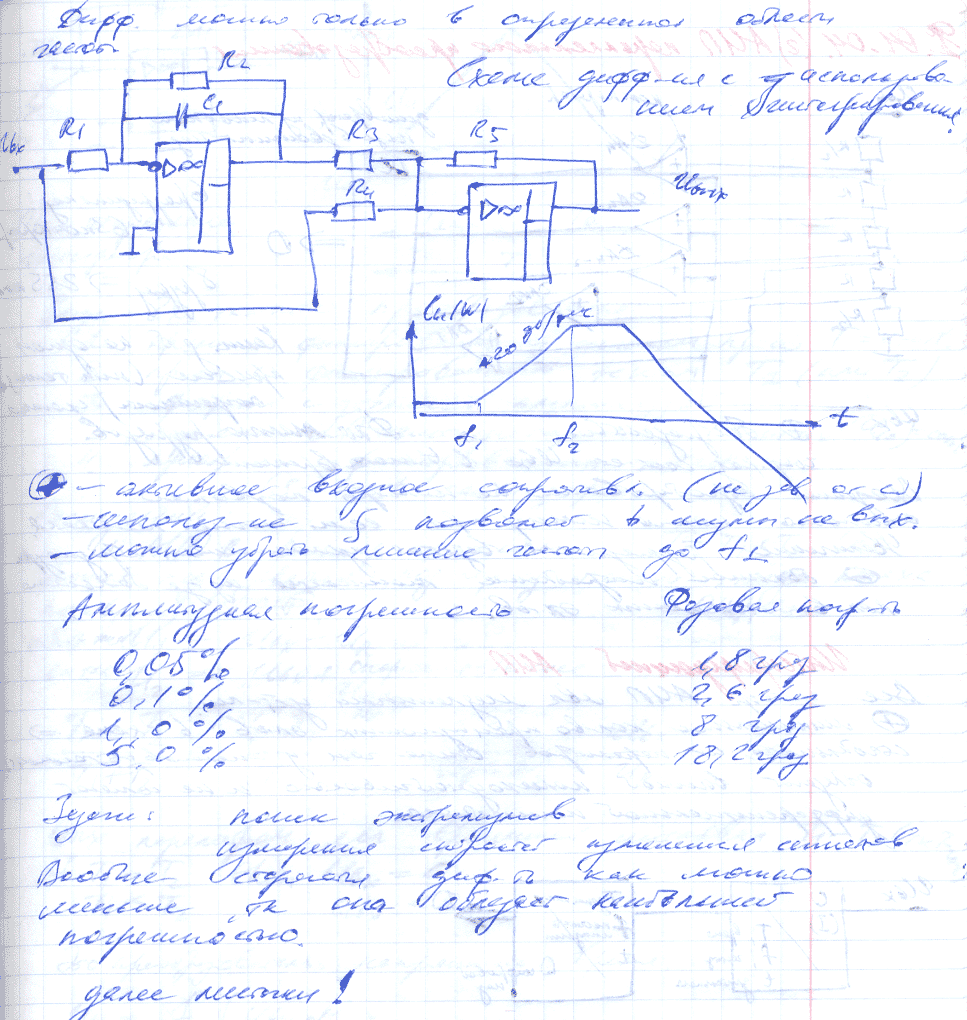 Дифф. можно только в определенной области
частот
Схема дифф-ия с использова-
нием интегрирования.
R2
C1
Uвх
R1
R3
R5
R4
Uвых
▷∞
▷∞
Ln|W|
+20 дб/дек
f1
f2
t
⊕ – активное входное сопротивл. (не зав от ω)
– использ-ие ∫ позволяет ↓ шумы на вых.
– можно убрать лишние частоты до f1
Амплитудная погрешность
Фазовая погр-ть
0,05%
1,8 град
0,1%
2,6 град
1,0 %
8 град
5,0 %
18,2 град
Задачи: поиск экстремумов
измерения скоростей изменения сигналов
Вообще стараются диф-ть как можно
меньше, тк она обладает наибольшей
погрешностью.
далее листочки!